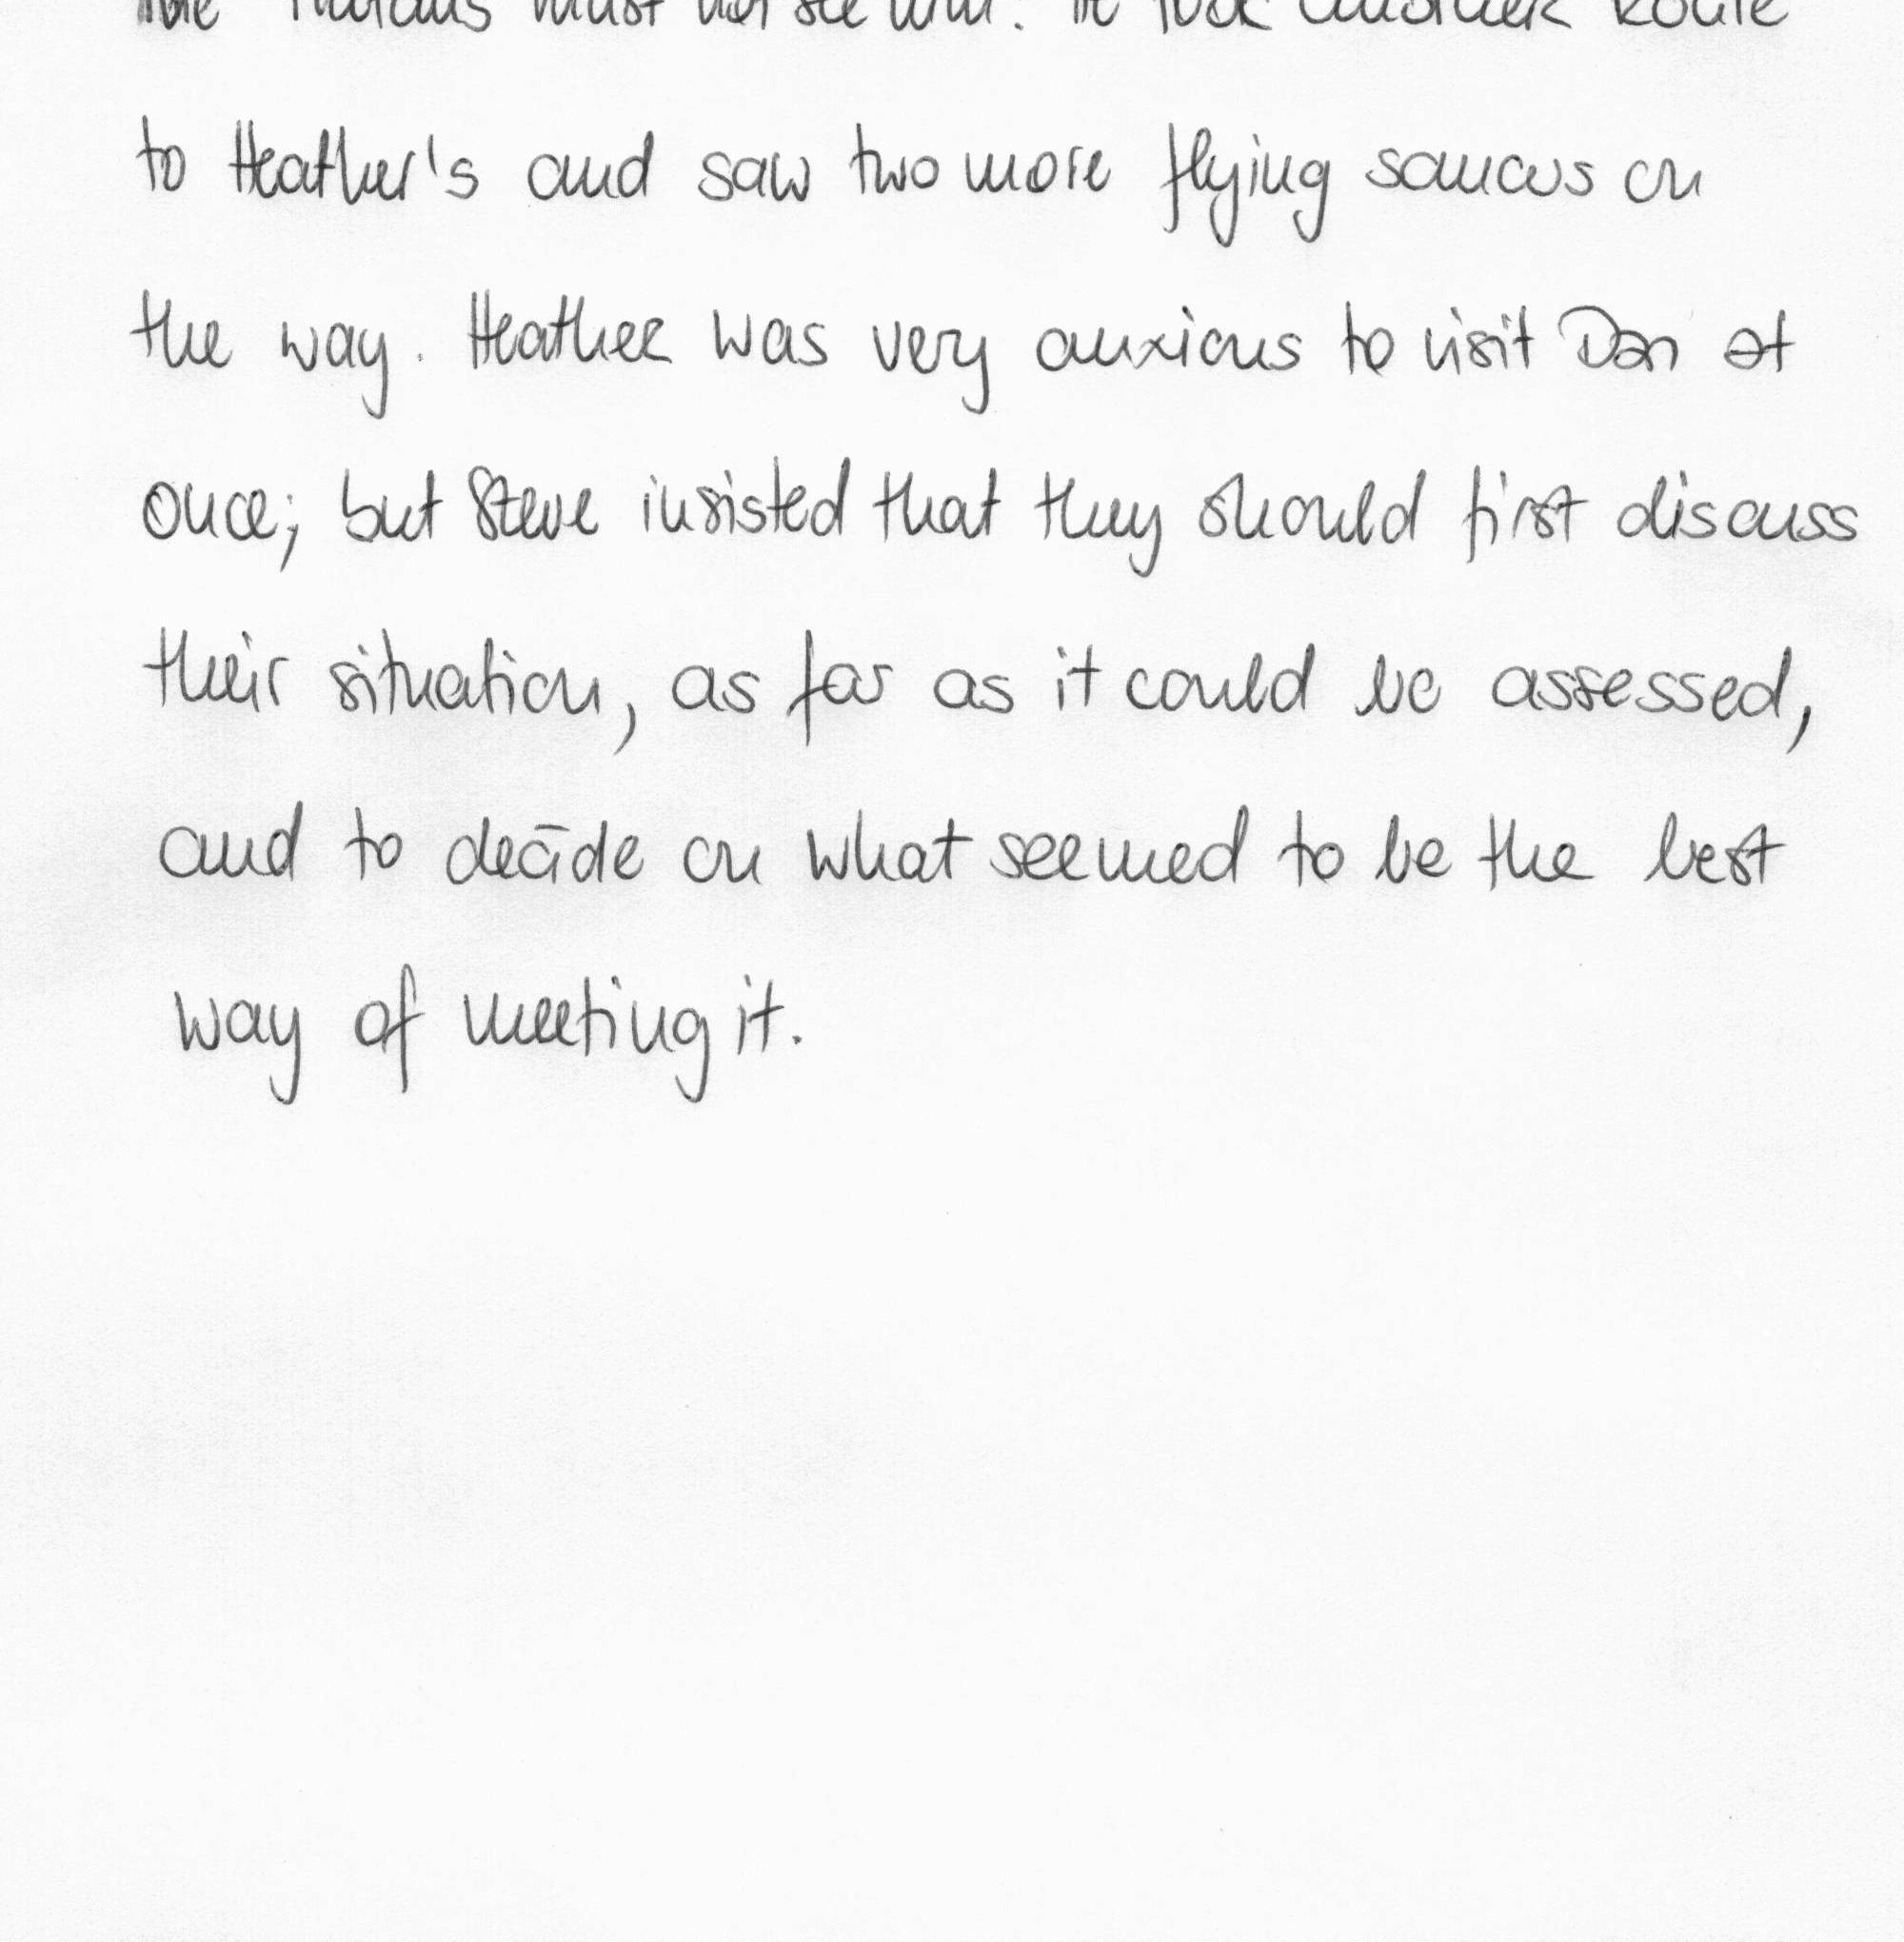 must not see him. He took another route
to Heather's and saw two more flying saucers on
the way. Heather was very anxious to visit Dan at
once; but Steve insisted that they should first discuss
their situation, as far as it could be assessed,
and to decide on what seemed to be the best
way of meeting it.